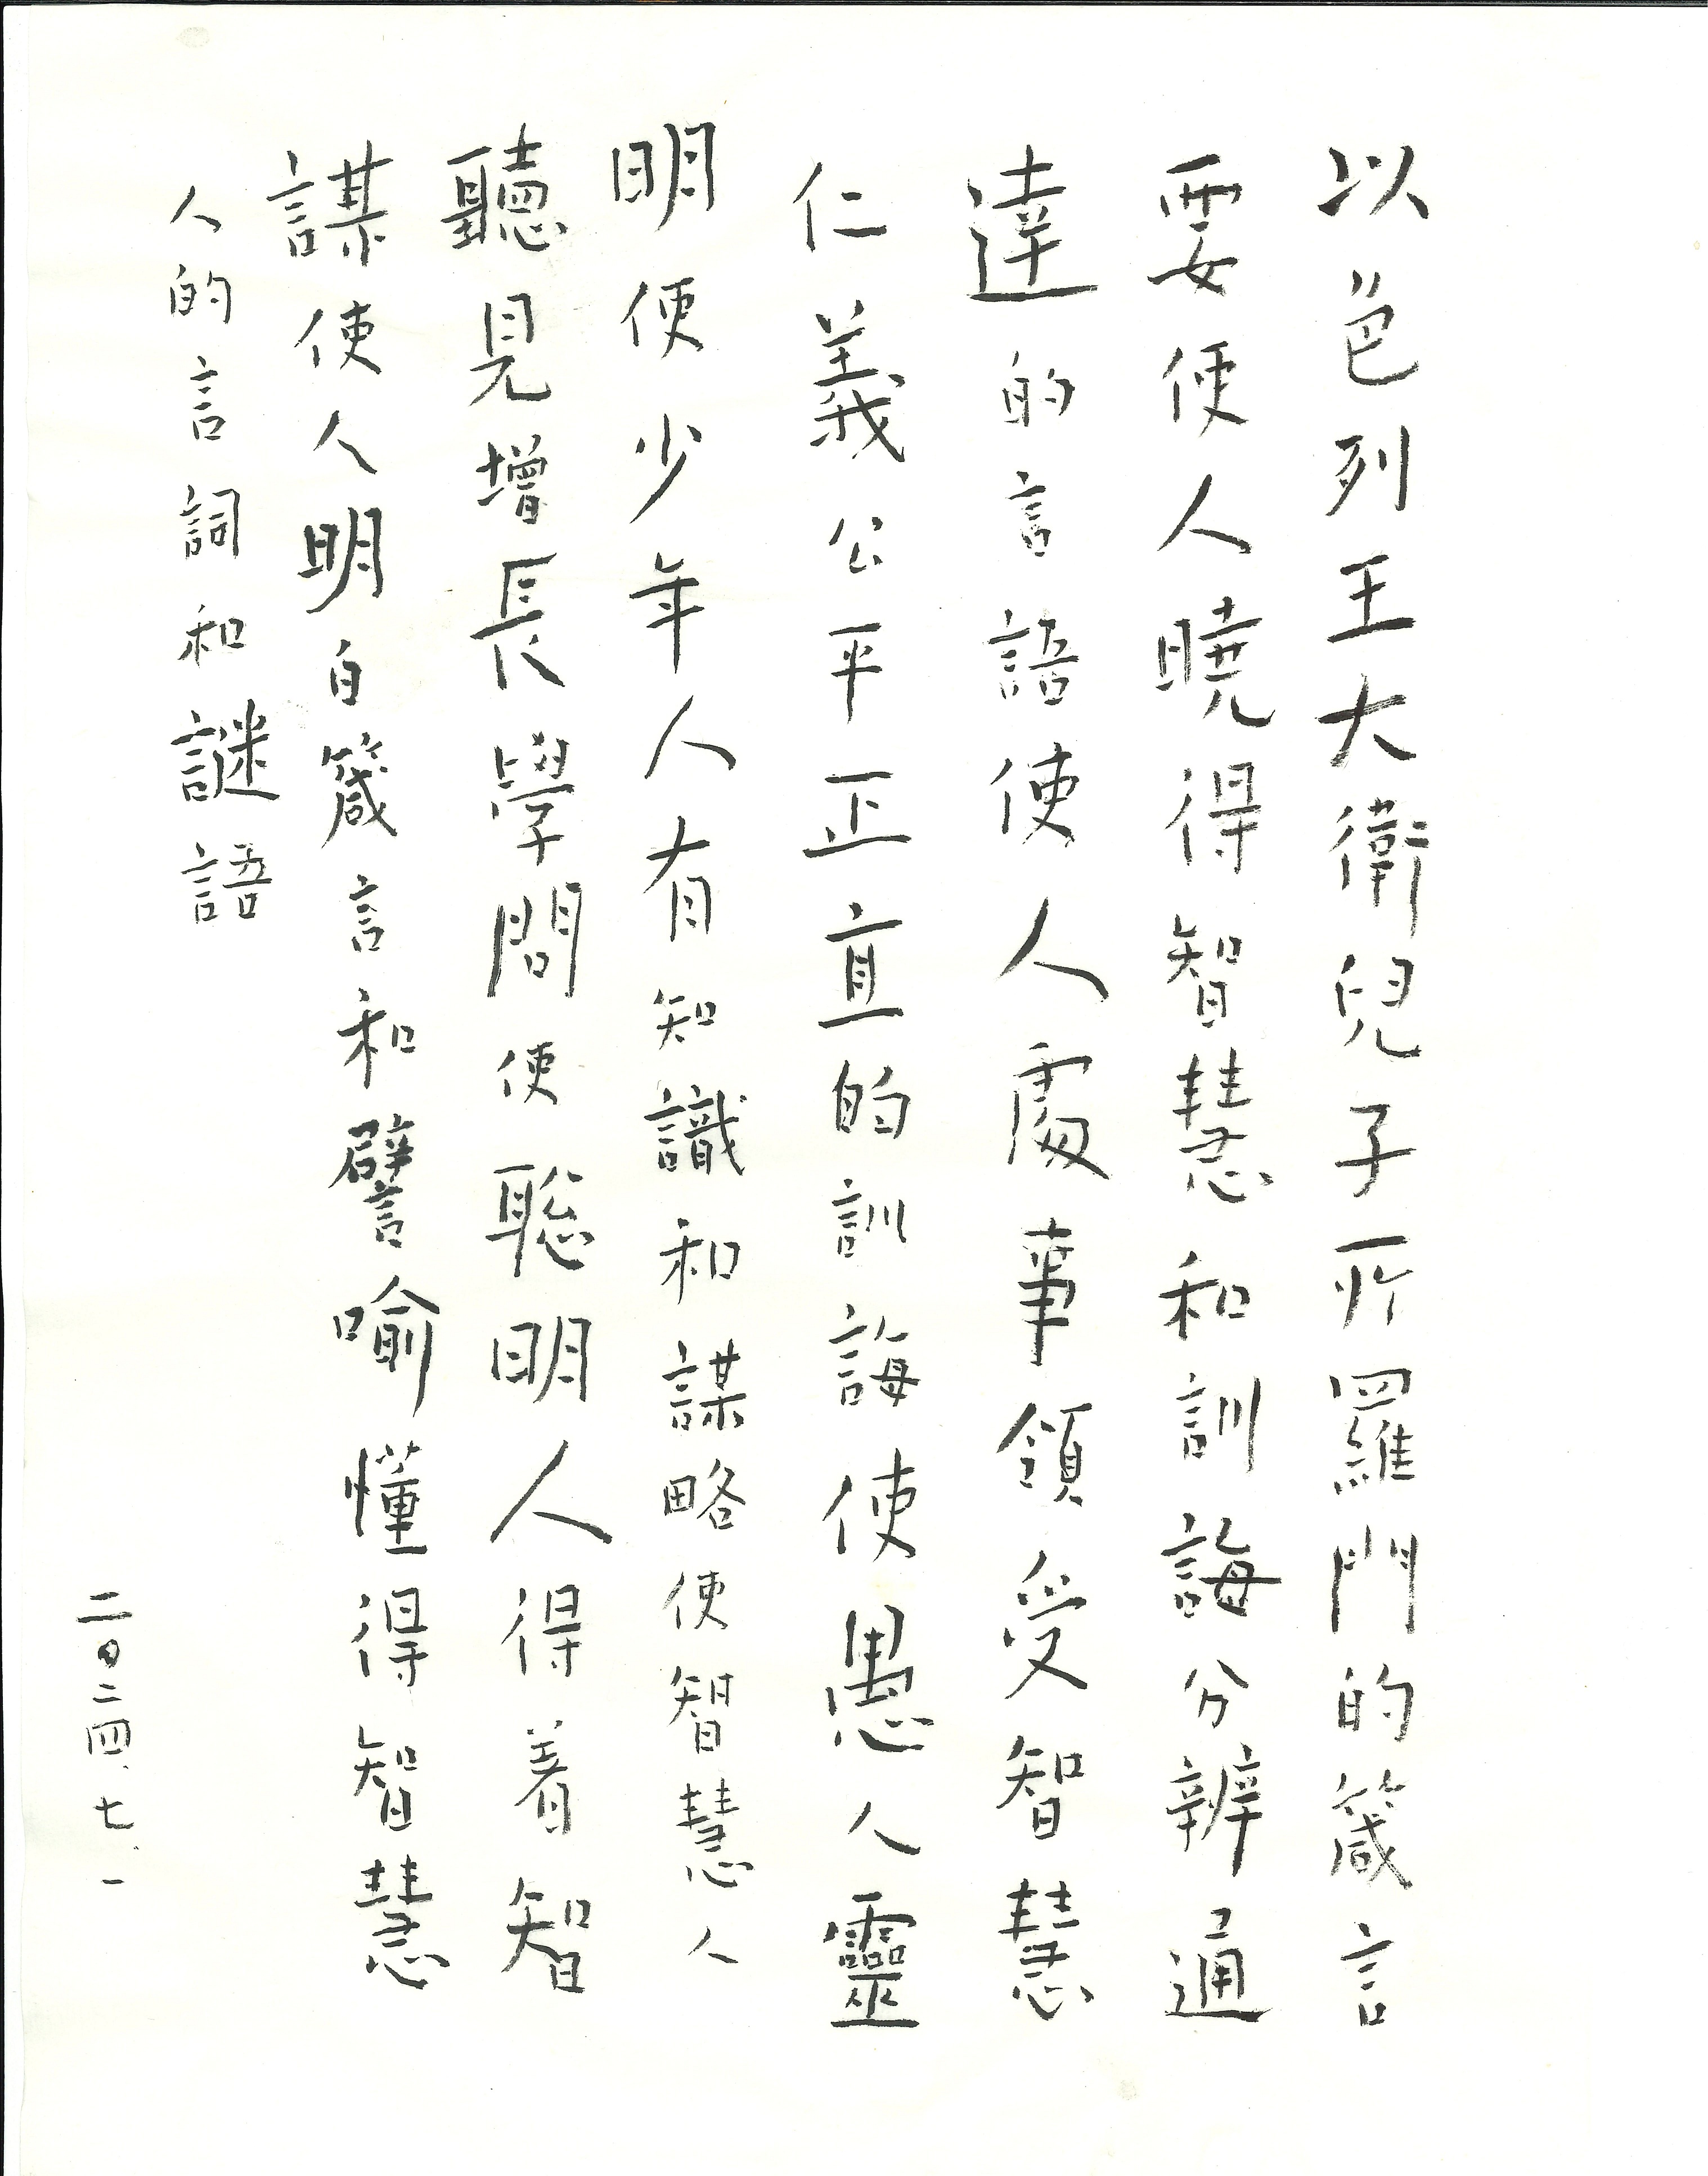 以色列王大衛兒子所羅門的箴言
要使人曉得智慧和訓誨分辨通
達的言語使人處事領受智慧
仁義公平正直的訓誨使愚人靈
明使少年人有知識和謀略使智慧人
聽見增長學問使聰明人得着智
謀使人明白箴言和譬喻懂得智慧
人的言詞和謎語
二〇二四.七.一